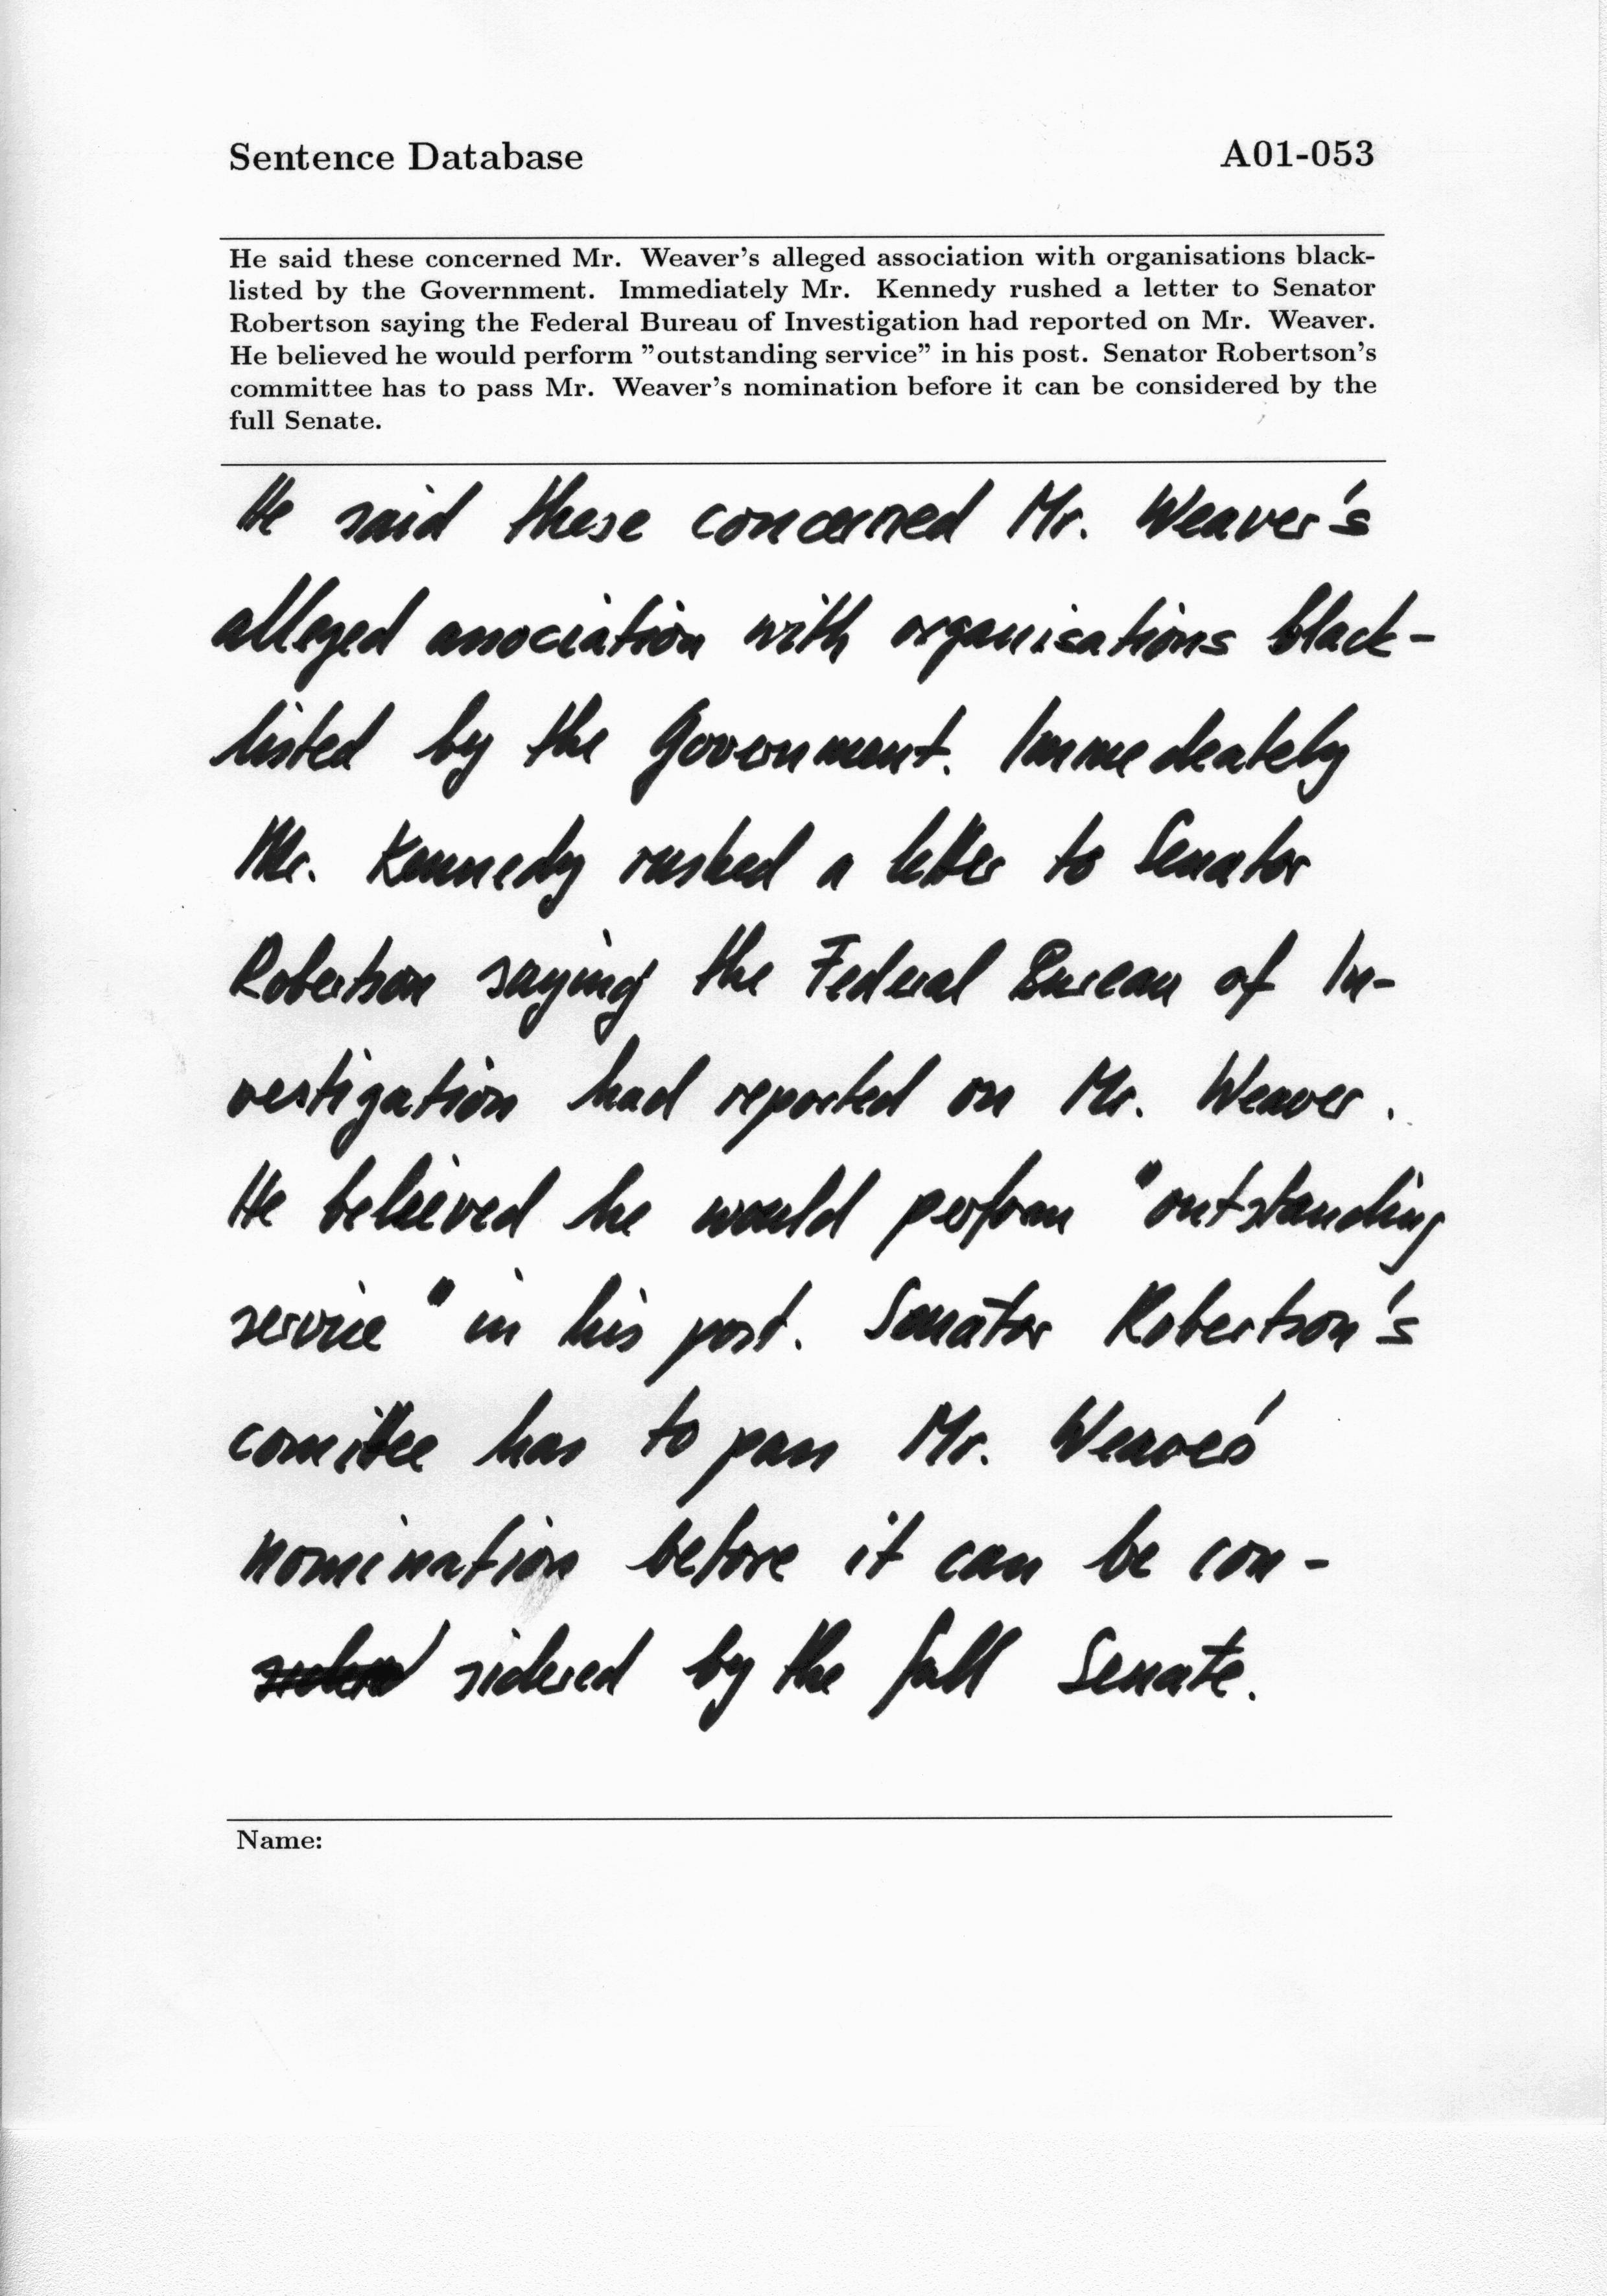 Sentence Database A01-053
He said these concerned Mr. Weaver's alleged association with organisations black-
listed by the Government. Immediately Mr. Kennedy rushed a letter to Senator
Robertson saying the Federal Bureau of Investigation had reported on Mr. Weaver.
He believed he would perform ”outstanding service” in his post. Senator Robertson's
committee has to pass Mr. Weaver's nomination before it can be considered by the
full Senate.
He said these concerned Mr. Weaver's
alleged association with organisations black-
listed by the Government. Immedeately
Mr. Kennedy rushed a letter to Senator
Robertson saying the Federal Bureau of In-
vestigation had reported on Mr. Weaver.
He believed he would perform "outstanding
service" in his post. Senator Robertson's
comittee has to pass Mr. Weavers'
nomination before it can be con-
sidered by the full Senate.
Name: